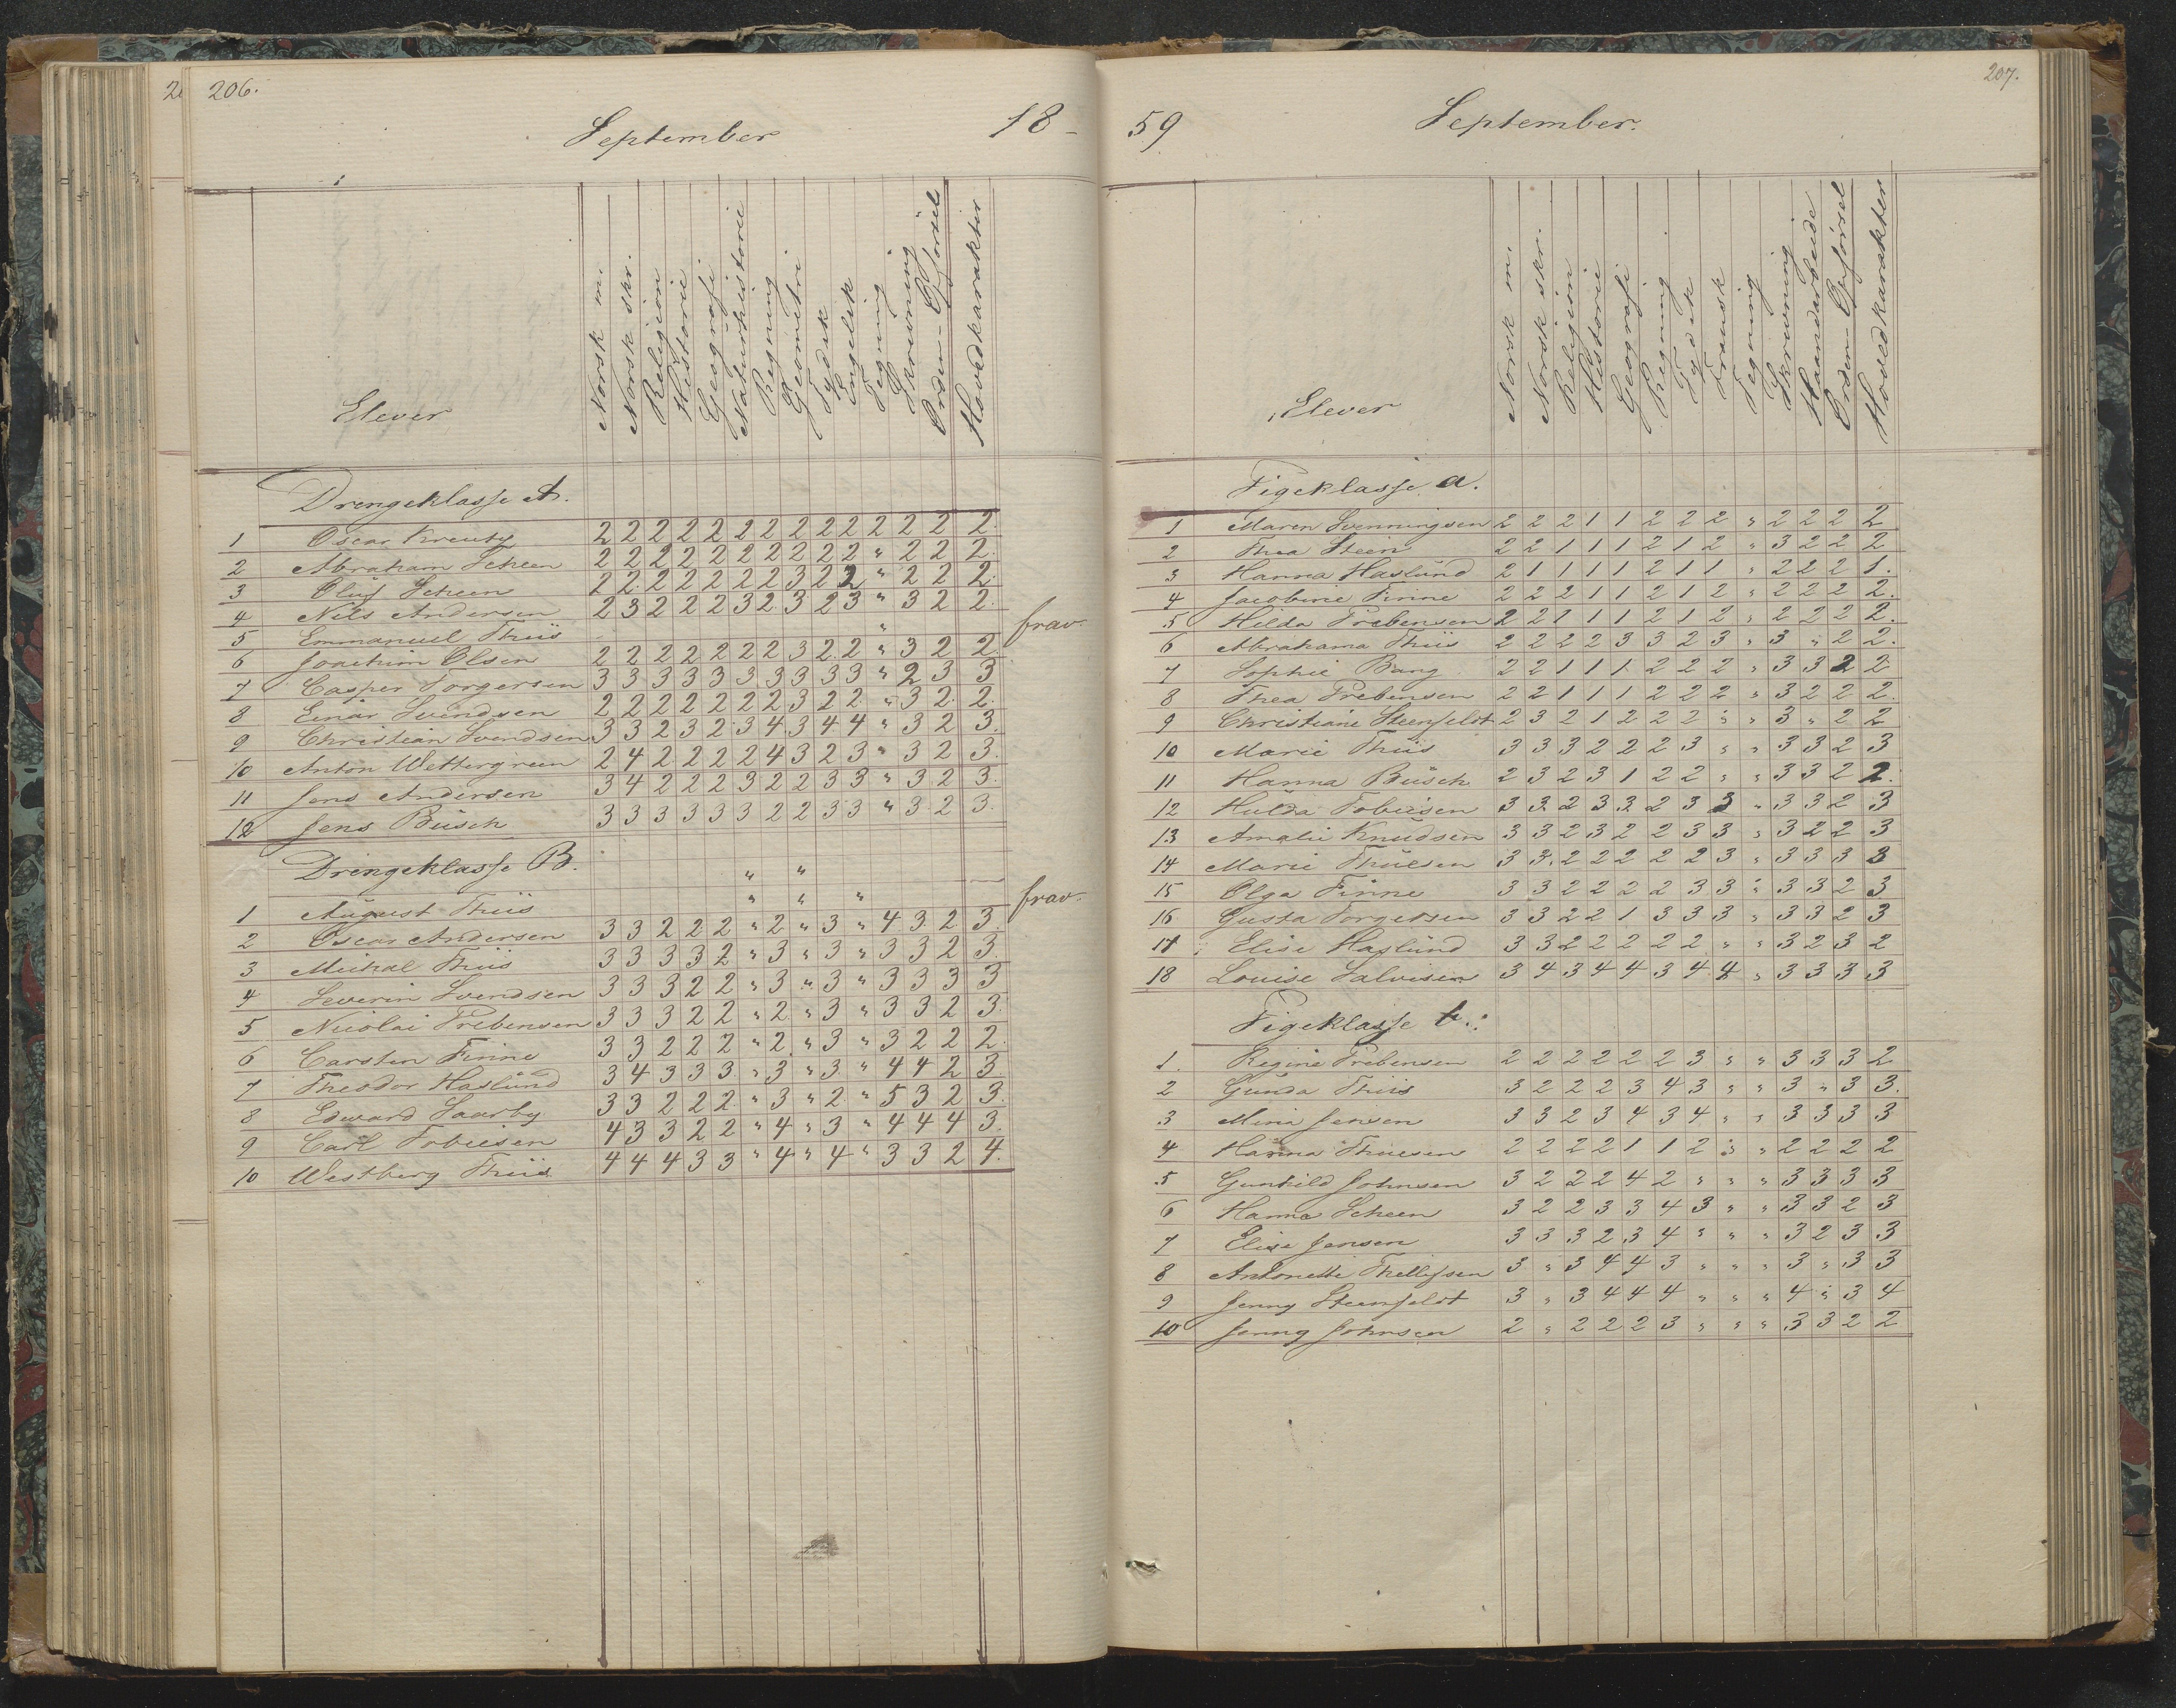 206.
September 18-
Elever
Norsk m.
Norsk skr.
Religion
Historie
Geografi
Naturhistorie
Regning
Geometri
Tydsk
Engelsk
Tegning
Skrivning
Orden-Opførsel
Hovedkarakter
Drengeklasse A.
1 Oscar Kreuby 2 2 2 2 2 2 2 2 2 2 2 2 2 2.
2 Abraham Scheen 2 2 2 2 2 2 2 2 2 2 " 2 2 2.
3 Oluf Scheen 2 2 2 2 2 2 2 3 2 2 " 2 2 2.
4 Nils Andersen 2 3 2 2 2 3 2 3 2 3 " 3 2 2.
5 Emmanuel Thiis " frav.
6 Joachim Olsen 2 2 2 2 2 2 2 3 2 2 " 3 2 2.
7 Casper Torgersen 3 3 3 3 3 3 3 3 3 3 " 2 3 3
8 Einar Svendsen 2 2 2 2 2 2 2 3 2 2 " 3 2 2.
9 Christian Svendsen 3 3 2 3 2 3 4 3 4 4 " 3 2 3.
10 Anton Wettergreen 2 4 2 2 2 2 4 3 2 3 " 3 2 3.
11 Jens Andersen 3 4 2 2 2 3 2 2 3 3 " 3 2 3.
12 Jens Busch 3 3 3 3 3 3 2 2 3 3 " 3 2 3.
Drengeklasse B. " "
1 August Thiis " " " frav.
2 Oscar Andersen 3 3 2 2 2 " 2 " 3 " 4 3 2 3.
3 Michal Thiis 3 3 3 3 2 " 3 " 3 " 3 3 2 3.
4 Severin Svendsen 3 3 3 2 2 " 3 " 3 " 3 3 3 3
5 Nicolai Prebensen 3 3 3 2 2 " 2 " 3 " 3 3 2 3.
6 Carsten Finne 3 3 2 2 2 " 2 " 3 " 3 2 2 2.
7 Theodor Haslund 3 4 3 3 3 " 3 " 3 " 4 4 2 3.
8 Edward Saarby 3 3 2 2 2 " 3 " 2 " 5 3 2 3.
9 Carl Tobiesen 4 3 3 2 2 " 4 " 3 " 4 4 4 3.
10 Westberg Thiis 4 4 4 3 3 " 4 " 4 " 3 3 2 4.
207.
59 September.
Elever
Norsk m.
Norsk skr.
Religion
Historie
Geografi
Regning
Tydsk
Fransk
Tegning
Skrivning
Haandarbeide
Orden-Opførsel
Hovedkarakter
Pigeklasse a.
1 Maren Svenningsen 2 2 2 1 1 2 2 2 " 2 2 2 2
2 Thea Steen 2 2 1 1 1 2 1 2 " 3 2 2 2
3 Hanna Haslund 2 1 1 1 1 2 1 1 " 2 2 2 1.
4 Jacobine Finne 2 2 2 1 1 2 1 2 " 2 2 2 2.
5 Hilda Prebensen 2 2 1 1 1 2 1 2 " 2 2 2 2.
6 Abrahama Thiis 2 2 2 2 3 3 2 3 " 3 " 2 2.
7 Sophie Bang 2 2 1 1 1 2 2 2 " 3 3 2 2
8 Thea Prebensen 2 2 1 1 1 2 2 2 " 3 2 2 2.
9 Christiane Steenfeldt 2 3 2 1 2 2 2 " " 3 " 2 2
10 Marie Thiis 3 3 3 2 2 2 3 " " 3 3 2 3
11 Hanna Busch 2 3 2 3 1 2 2 " " 3 3 2 2.
12 Hulda Tobiesen 3 3 2 3 3 2 3 3 " 3 3 2 3
13 Amalie Knudsen 3 3 2 3 2 2 3 3 " 3 2 2 3
14 Marie Thuesen 3 3 2 2 2 2 2 3 " 3 3 3 3
15 Olga Finne 3 3 2 2 2 2 3 3 " 3 3 2 3
16 Gusta Torgersen 3 3 2 2 1 3 3 3 " 3 3 2 3
17 Elise Haslund 3 3 2 2 2 2 2 " " 3 2 3 2
18 Louise Salvesen 3 4 3 4 4 3 4 4 " 3 3 3 3
Pigeklasse b.
1. Regine Prebensen 2 2 2 2 2 2 3 " " 3 3 3 2
2 Gunda Thiis 3 2 2 2 3 4 3 " " 3 " 3 3.
3 Mina Jensen 3 3 2 3 4 3 4 " " 3 3 3 3
4 Hanna Thuesen 2 2 2 2 1 1 2 " " 2 2 2 2
5 Gunhild Johnsen 3 2 2 2 4 2 " " " 3 3 3 3
6 Hanna Scheen 3 2 2 3 3 4 3 " " 3 3 2 3
7 Elise Jensen 3 3 3 2 3 4 " " " 3 2 3 3
8 Antonette Thellefsen 3 " 3 4 4 3 " " " 3 " 3 3
9 Jenny Steenfeldt 3 " 3 4 4 4 " " " 4 " 3 4
10 Jenny Johnsen 2 " 2 2 2 3 " " " 3 3 2 2